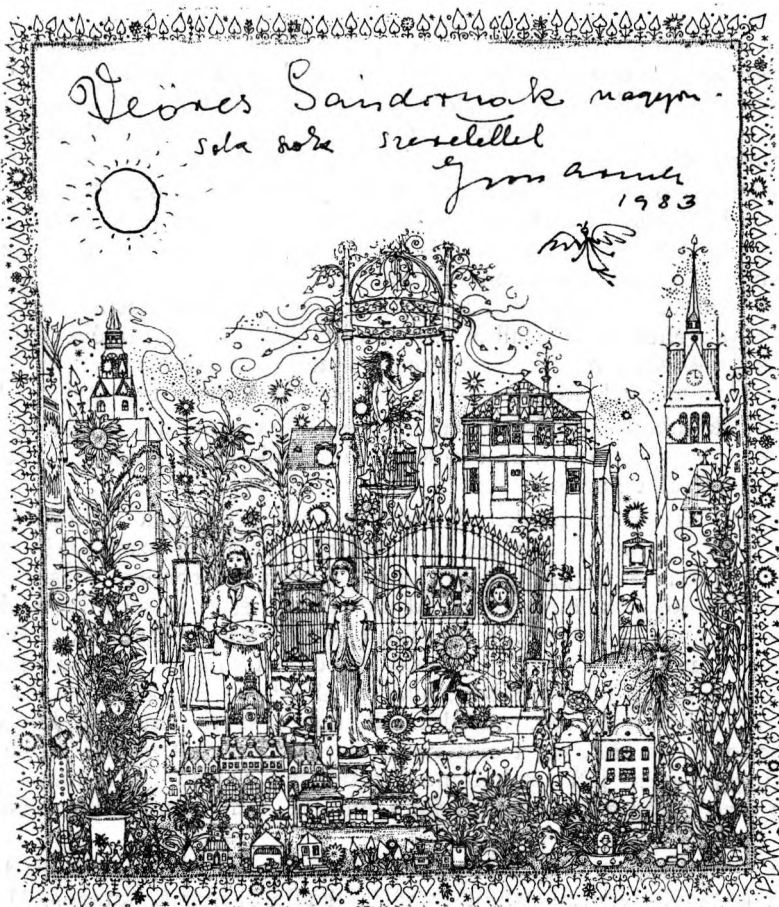 Weöres Sándornak nagyon -
sok sok szeretettel
Gross Arnold
1983